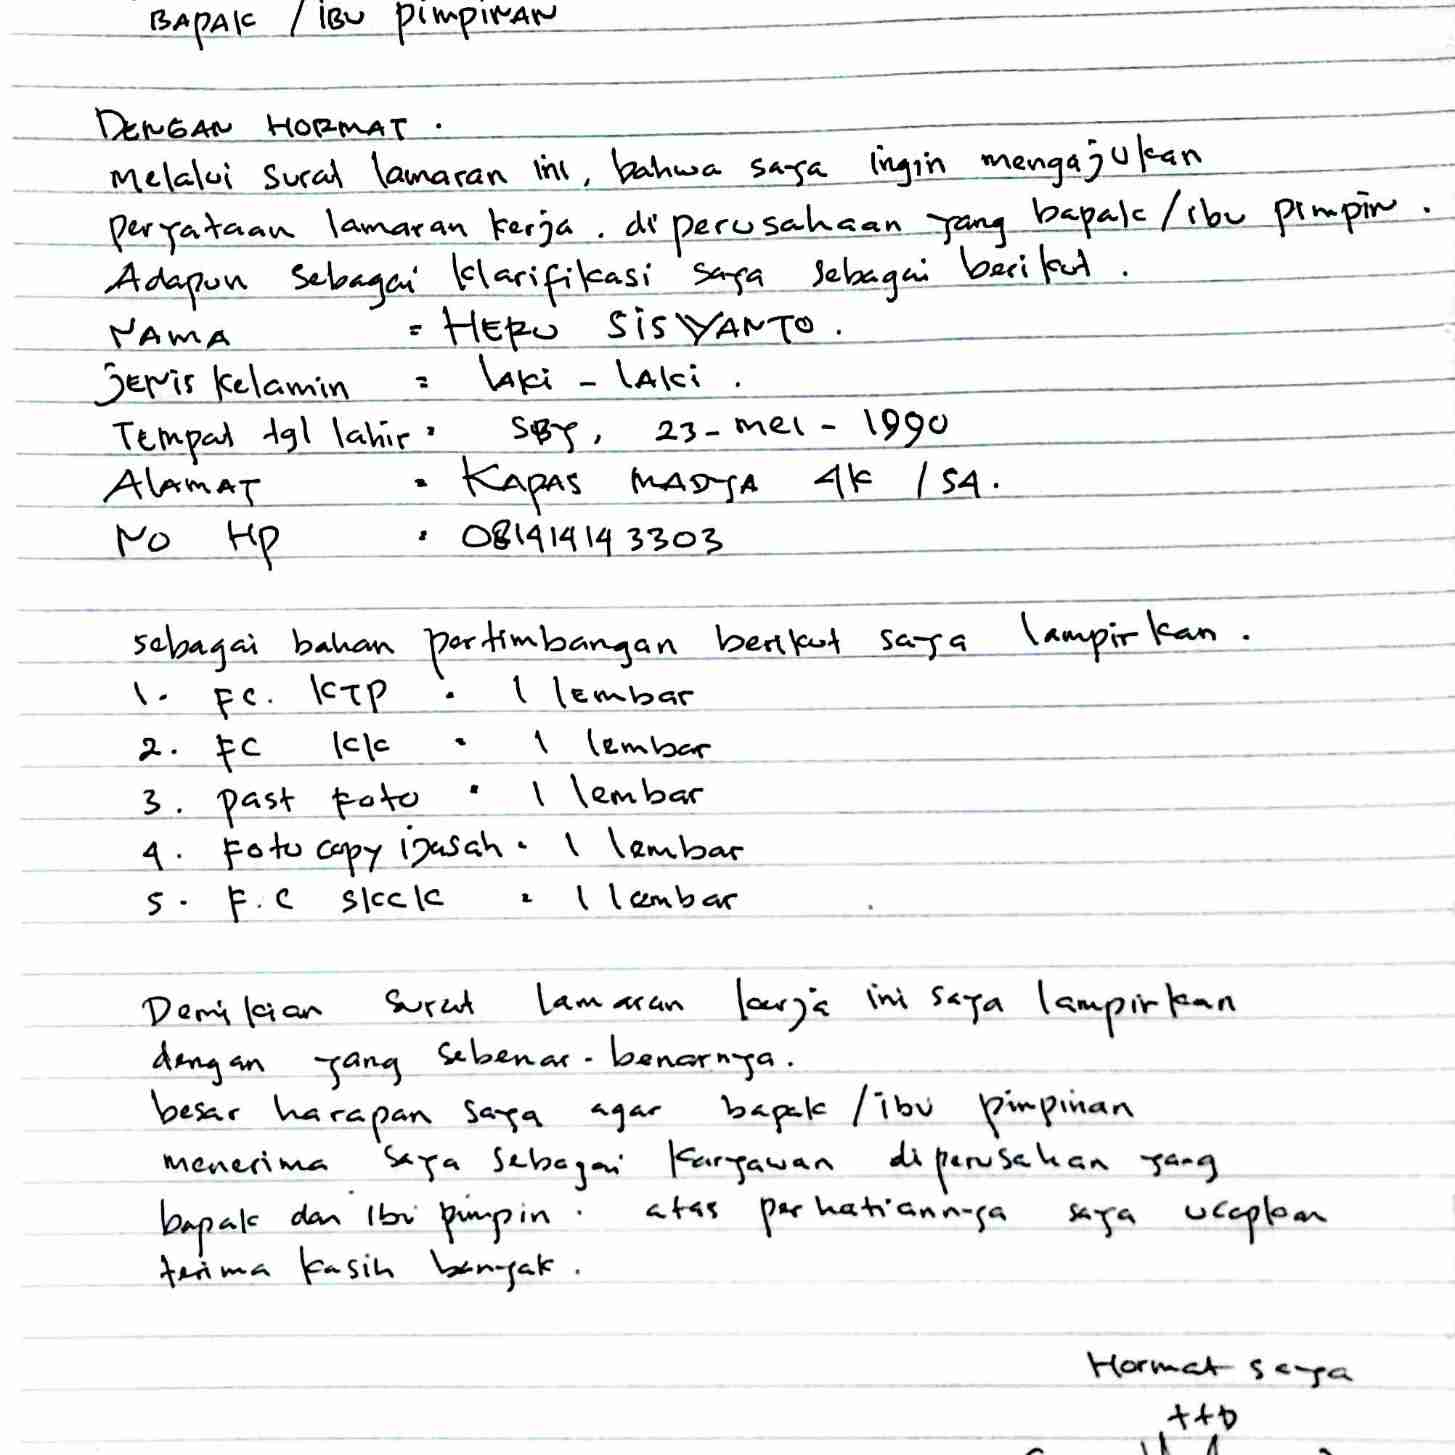 BAPAK / IBU PIMPINAN
DENGAN HORMAT.
Melalui surat lamaran ini, bahwa saya ingin mengajukan
peryataan lamaran kerja. di perusahaan yang bapak/ibu pimpin.
Adapun sebagai klarifikasi saya sebagai berikut.
NAMA = HERU SISWANTO.
jENis kelamin = lAki - lAki.
Tempat tgl lahir: SBY, 23-mei-1990
AlAMAT : KAPAS MADYA 4K / 54.
No Hp : 081414143303
sebagai bahan pertimbangan berikut saya lampirkan.
1. FC. KTP : 1 lembar
2. FC KK : 1 lembar
3. past foto : 1 lembar
4. Foto copy ijasah : 1 lembar
5. F.C skck : 1 lembar
Demikian surat lamaran kerja ini saya lampirkan
dengan yang sebenar-benarnya.
besar harapan saya agar bapak/ibu pimpinan
menerima saya sebagai karyawan diperusahan yang
bapak dan ibu pimpin. atas perhatiannya saya ucapkan
terima kasih banyak.
Hormat saya
ttD